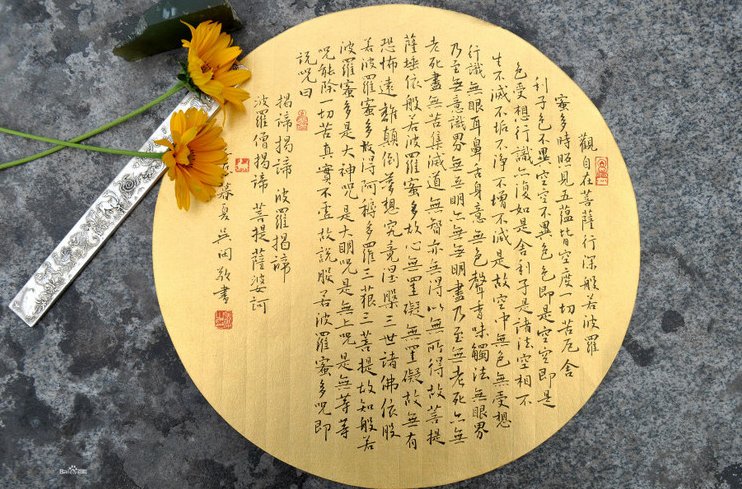 觀自在菩薩行深般若波羅
蜜多時照見五蘊皆空度一切苦厄舍
利子色不異空空不異色色即是空空即是
色受想行識亦復如是舍利子是諸法空相不
生不滅不垢不淨不增不減是故空中無色無受想
行識無眼耳鼻舌身意無色聲香味觸法無眼界
乃至無意識界無無明亦無無明盡乃至無老死亦無
老死盡無苦集滅道無智亦無得以無所得故菩提
薩埵依般若波羅蜜多故心無罣礙無罣礙故無有
恐怖遠離顛倒夢想究竟涅槃三世諸佛依般
若波羅蜜多故得阿耨多羅三藐三菩提故知般若
波羅蜜多是大神呪是大明呪是無上呪是無等等
呪能除一切苦真實不虛故說般若波羅蜜多呪即
說呪曰
揭諦揭諦 波羅揭諦
波羅僧揭諦 菩提薩婆訶
暮夏吳敬書